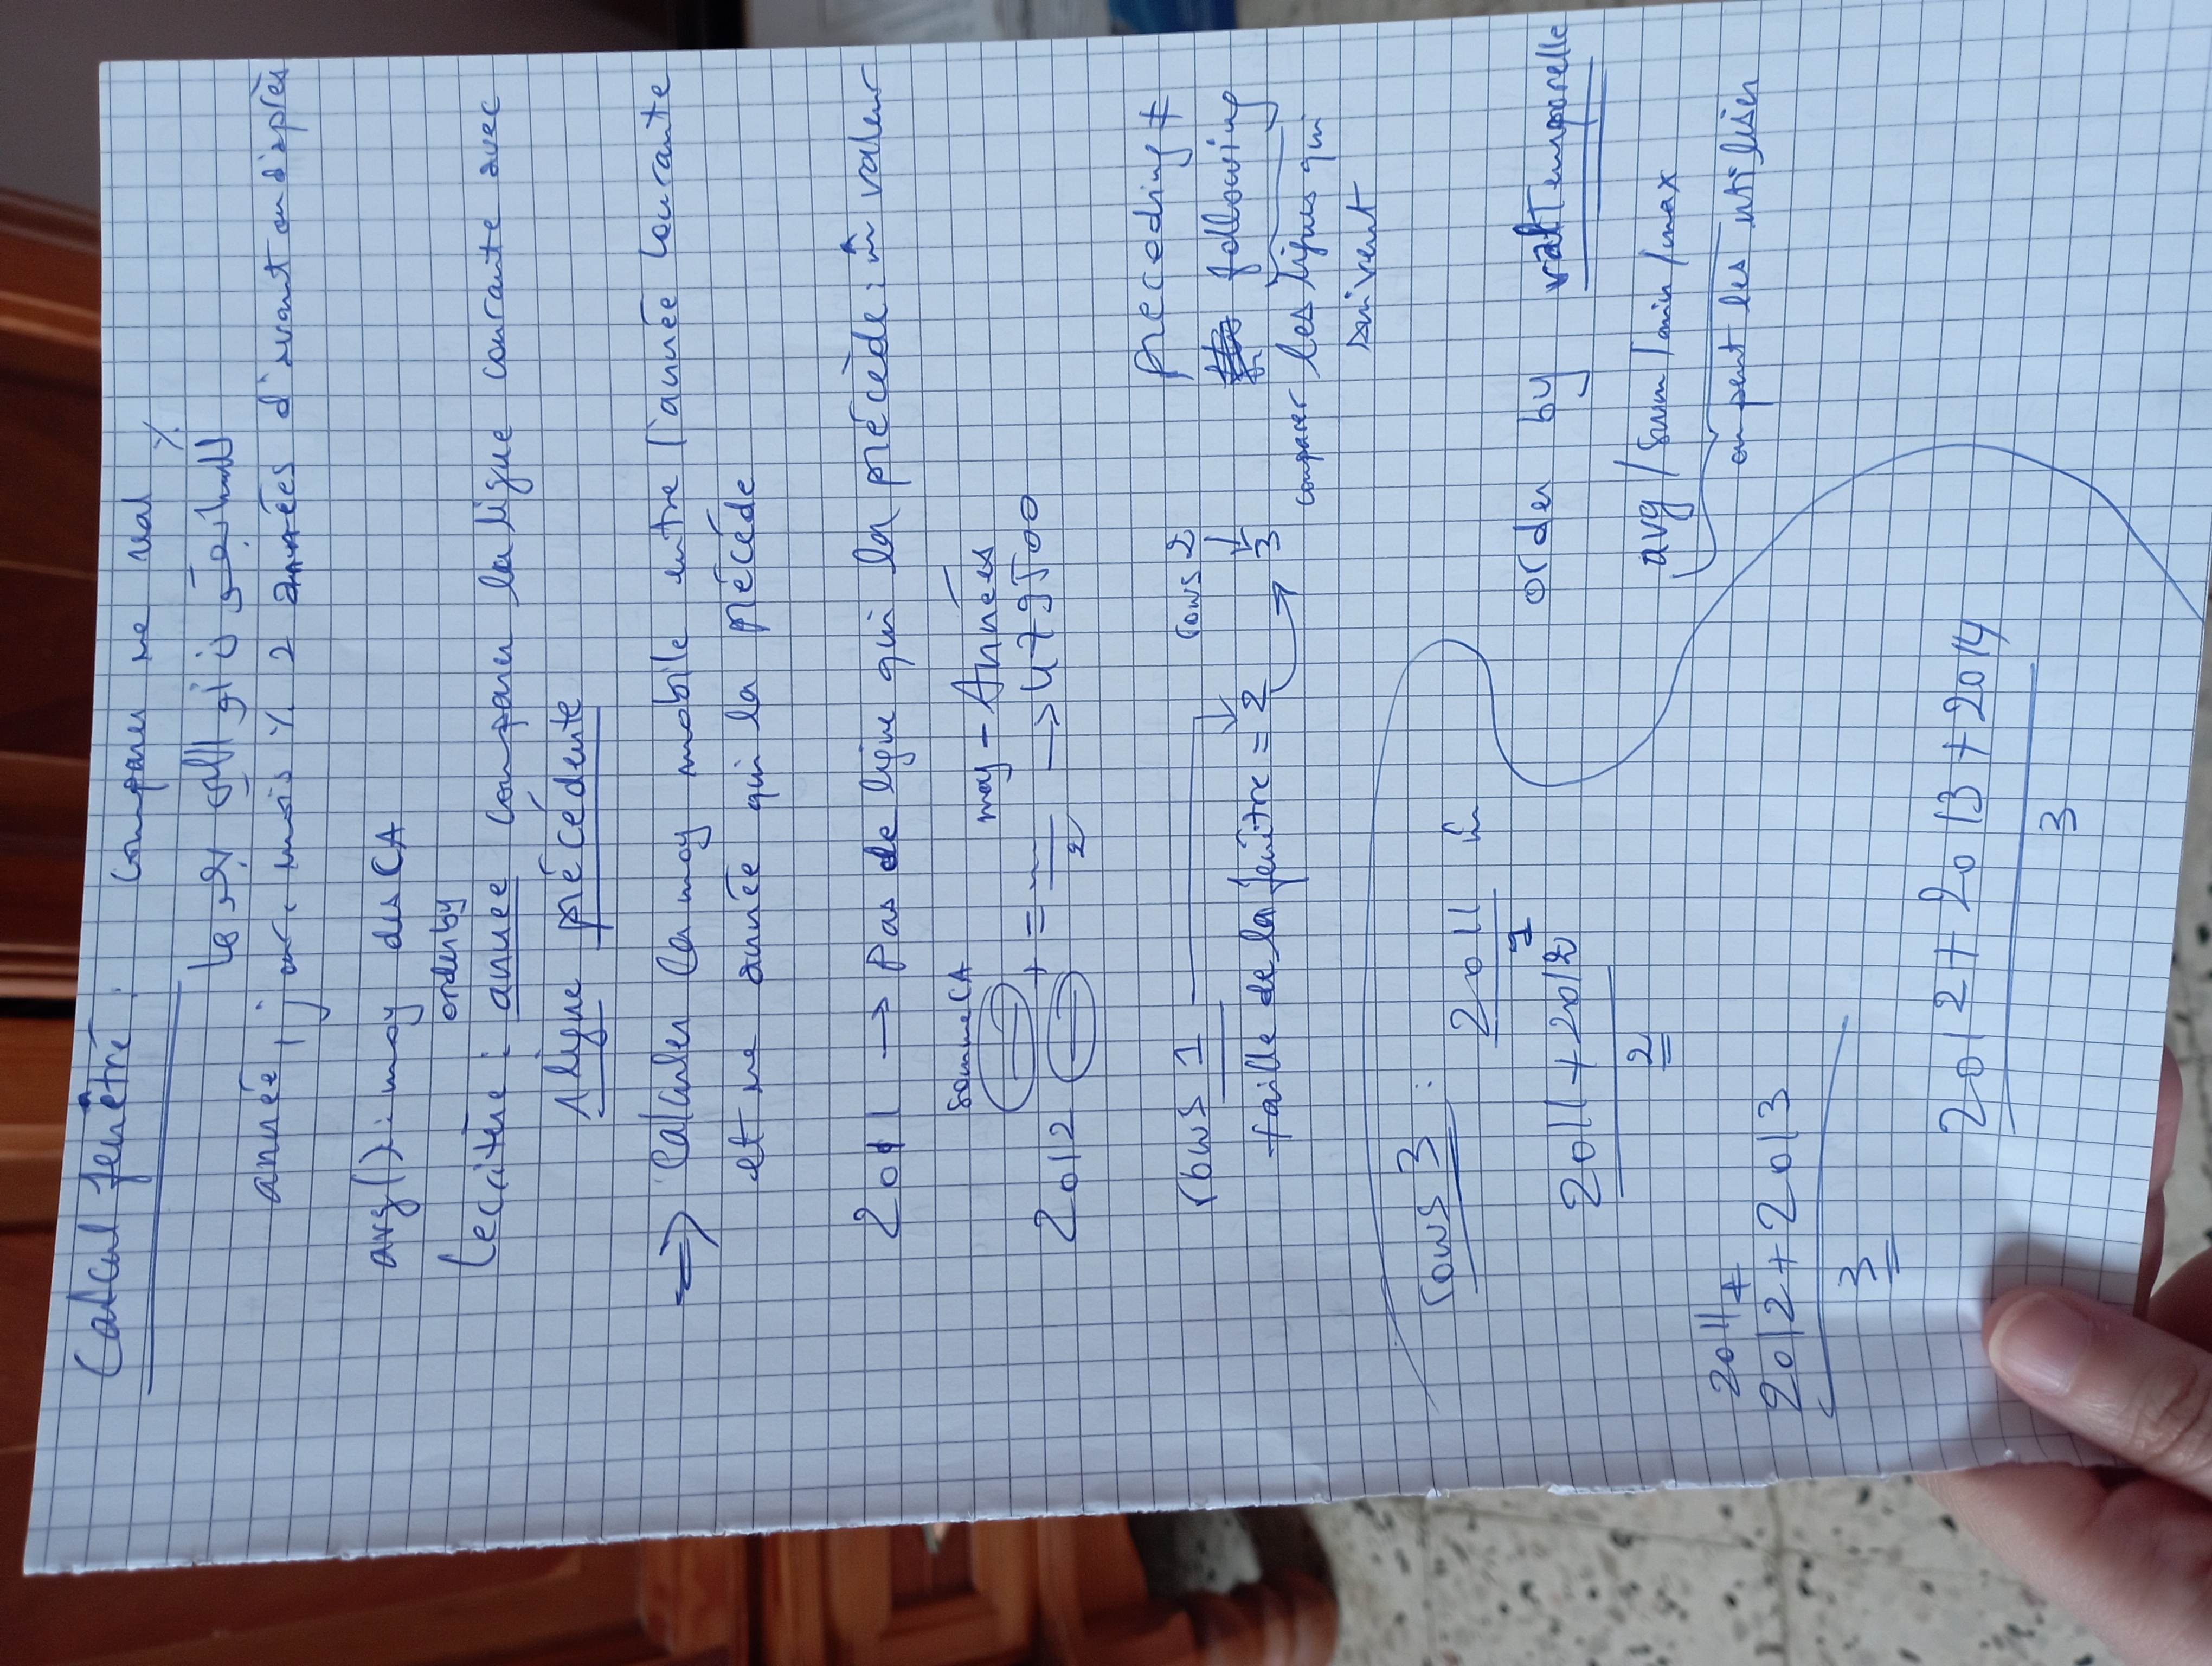 Calcul fenêtré : comparer une val %
للسابقون أو اللي بعدها
année, jour, mois % 2 années d'avant ou d'après
avg() : moy des CA
order by
Le critère : année comparer la ligne courante avec
1 ligne précédente
=> Calculer la moy mobile entre l'année courante
et une année qui la précède
2011 → Pas de ligne qui la précède : m̂ valeur
Somme CA
moy - Années
2012 + = — / 2 → 479500
rows 1
rows 2
preceding ≠
following
taille de la fenêtre = 2 → 3
comparer les lignes qui
suivent
rows 3 :
2011 m̂
1
2011 + 2012
2
order by val Temporelle
avg / sum / min / max
on peut les utiliser
2011 +
2012 + 2013
3
2012 + 2013 + 2014
3